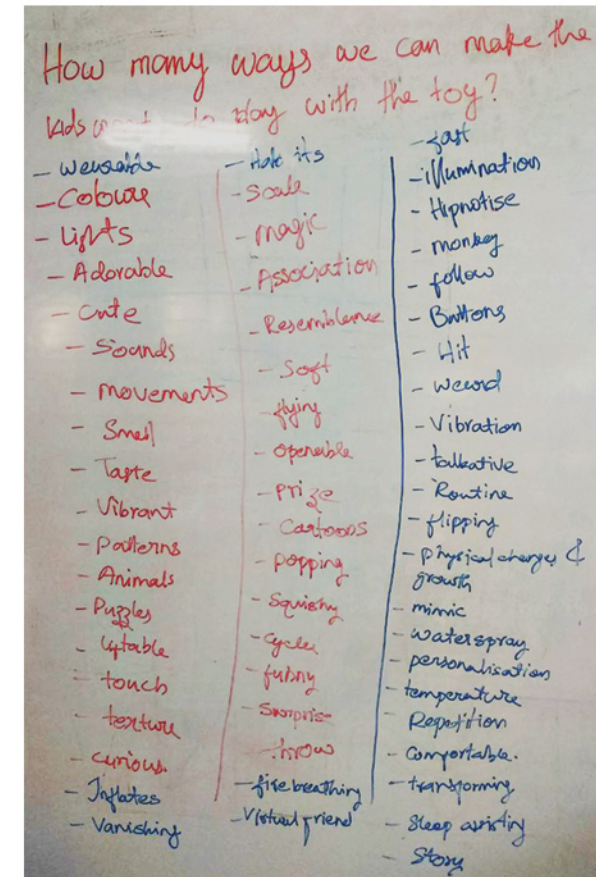 How many ways we can make the
kids want to play with the toy?
- Colour
- Lights
- Adorable
- Cute
- Sounds
- movements
- Smell
- Taste
- Vibrant
- Patterns
- Animals
- Puzzles
- touch
- texture
- Curious.
- Inflates
- Vanishing
- Scale
- magic
- Association
- Resemblence
- Soft
- flying
- Openable
- Prize
- Cartoons
- Popping
- Squishy
- Cycle
- funny
- Surprise
- throw
- fire breathing
- Virtual friend
- fast
- illumination
- Hipnotise
- monkey
- follow
- Buttons
- Hit
- Vibration
- talkative
- Routine
- flipping
- Physical changes &
growth
- mimic
- water spray
- personalisation
- temperature
- Repetition
- Comfortable.
- transforming
- Sleep assisting
- Story